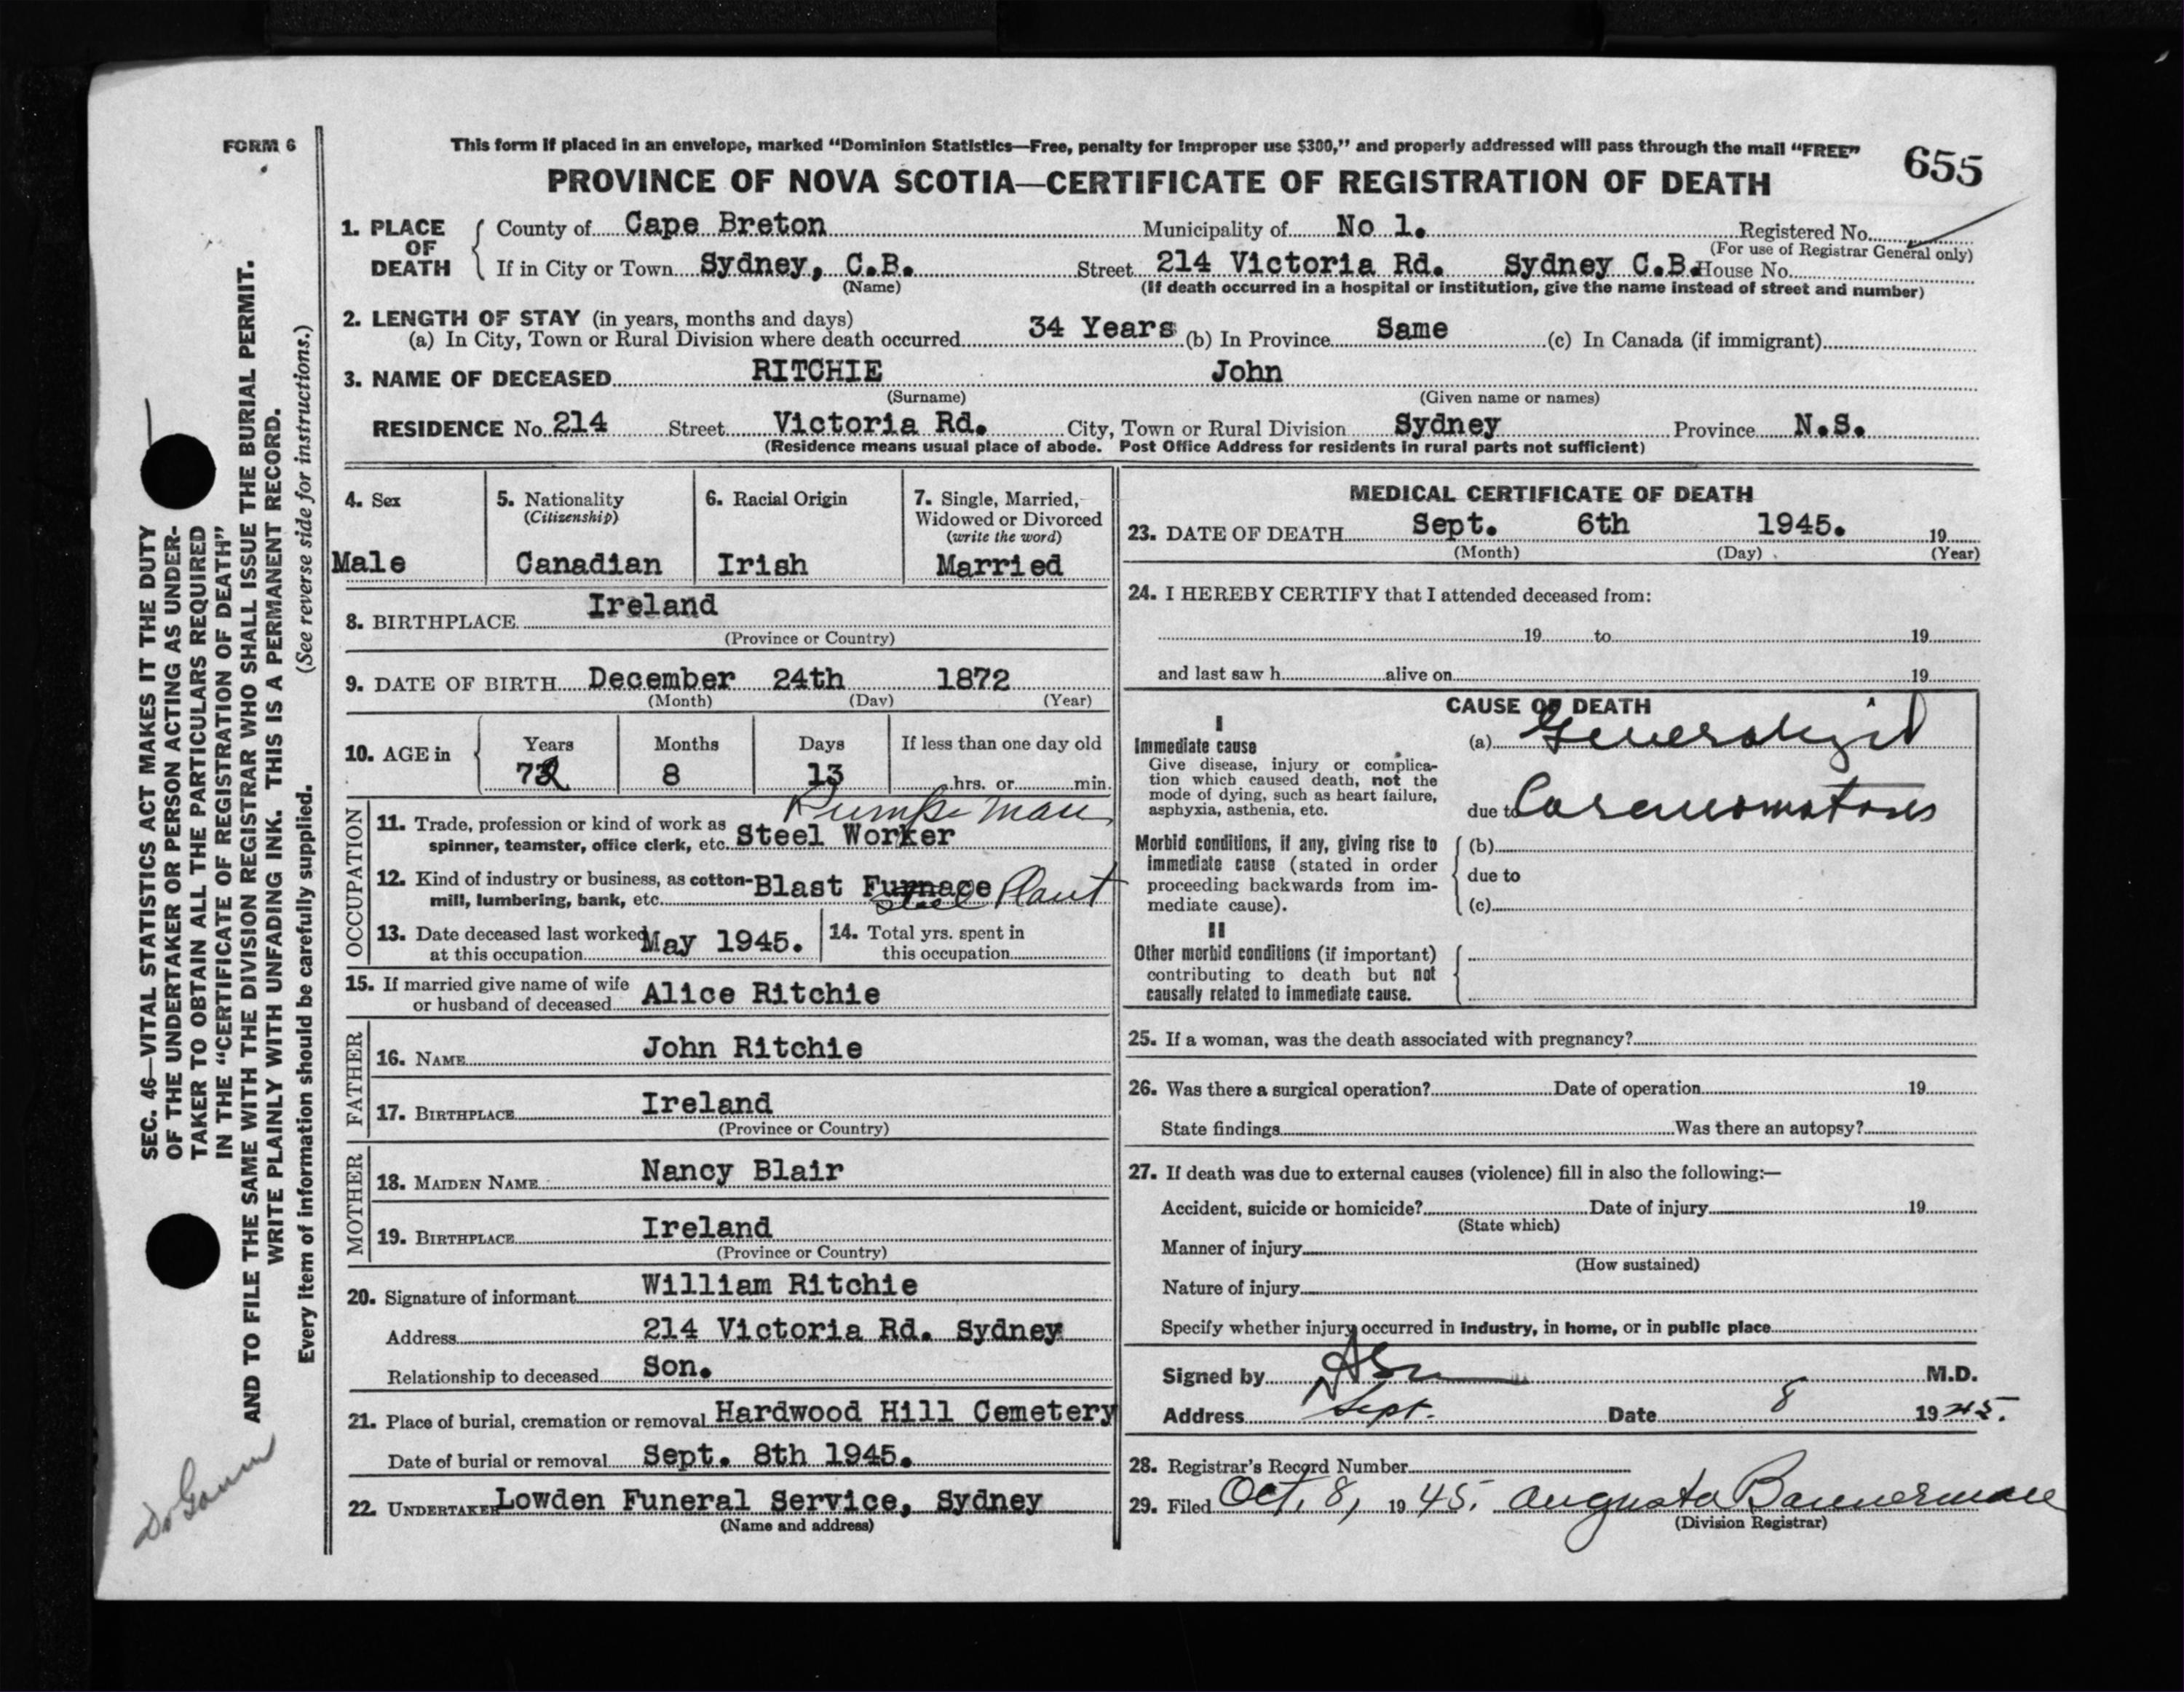 FORM 6
This form if placed in an envelope, marked "Dominion Statistics—Free, penalty for improper use $300," and properly addressed will pass through the mail "FREE"
655
PROVINCE OF NOVA SCOTIA—CERTIFICATE OF REGISTRATION OF DEATH
1. PLACE OF DEATH
County of Cape Breton Municipality of No 1. Registered No.
(For use of Registrar General only)
If in City or Town Sydney, C.B. Street 214 Victoria Rd. Sydney C.B. House No.
(Name) (If death occurred in a hospital or institution, give the name instead of street and number)
2. LENGTH OF STAY (in years, months and days)
(a) In City, Town or Rural Division where death occurred 34 Years (b) In Province Same (c) In Canada (if immigrant)
3. NAME OF DECEASED RITCHIE John
(Surname) (Given name or names)
RESIDENCE No. 214 Street Victoria Rd. City, Town or Rural Division Sydney Province N.S.
(Residence means usual place of abode. Post Office Address for residents in rural parts not sufficient)
4. Sex
Male
5. Nationality
(Citizenship)
Canadian
6. Racial Origin
Irish
7. Single, Married,
Widowed or Divorced
(write the word)
Married
8. BIRTHPLACE Ireland
(Province or Country)
9. DATE OF BIRTH December 24th 1872
(Month) (Day) (Year)
10. AGE in
Years Months Days If less than one day old
72 8 13 hrs. or min.
OCCUPATION
Pumpe Man
11. Trade, profession or kind of work as
spinner, teamster, office clerk, etc. Steel Worker
12. Kind of industry or business, as cotton-
mill, lumbering, bank, etc. Blast Furnace Steel Plant
13. Date deceased last worked
at this occupation May 1945.
14. Total yrs. spent in
this occupation
15. If married give name of wife
or husband of deceased Alice Ritchie
FATHER
16. NAME John Ritchie
17. BIRTHPLACE Ireland
(Province or Country)
MOTHER
18. MAIDEN NAME Nancy Blair
19. BIRTHPLACE Ireland
(Province or Country)
20. Signature of informant William Ritchie
Address 214 Victoria Rd. Sydney
Relationship to deceased Son.
21. Place of burial, cremation or removal Hardwood Hill Cemetery
Date of burial or removal Sept. 8th 1945.
22. UNDERTAKER Lowden Funeral Service, Sydney
(Name and address)
MEDICAL CERTIFICATE OF DEATH
23. DATE OF DEATH Sept. 6th 1945. 19
(Month) (Day) (Year)
24. I HEREBY CERTIFY that I attended deceased from:
19 to 19
and last saw h alive on 19
CAUSE OF DEATH
I
Immediate cause
Give disease, injury or complica-
tion which caused death, not the
mode of dying, such as heart failure,
asphyxia, asthenia, etc.
(a) Generalized
due to Carcinomatosis
Morbid conditions, if any, giving rise to
immediate cause (stated in order
proceeding backwards from im-
mediate cause).
(b)
due to
(c)
II
Other morbid conditions (if important)
contributing to death but not
causally related to immediate cause.
25. If a woman, was the death associated with pregnancy?
26. Was there a surgical operation? Date of operation 19
State findings Was there an autopsy?
27. If death was due to external causes (violence) fill in also the following:—
Accident, suicide or homicide? Date of injury 19
(State which)
Manner of injury
(How sustained)
Nature of injury
Specify whether injury occurred in industry, in home, or in public place
Signed by M.D.
Address Sept. Date 8 1945.
28. Registrar's Record Number
29. Filed Oct. 8, 1945. Augusta Bannerman
(Division Registrar)
SEC. 46—VITAL STATISTICS ACT MAKES IT THE DUTY
OF THE UNDERTAKER OR PERSON ACTING AS UNDER-
TAKER TO OBTAIN ALL THE PARTICULARS REQUIRED
IN THE "CERTIFICATE OF REGISTRATION OF DEATH"
AND TO FILE THE SAME WITH THE DIVISION REGISTRAR WHO SHALL ISSUE THE BURIAL PERMIT.
WRITE PLAINLY WITH UNFADING INK. THIS IS A PERMANENT RECORD.
Every item of information should be carefully supplied. (See reverse side for instructions.)